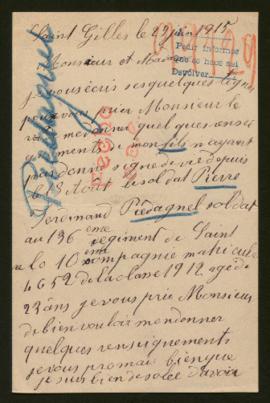 Saint Gilles le 29 juin 1915
Monsieur et Madame
Je vous écris ses quelques lignes
pour vous prier Monsieur le
me donner quelques renser
gnements de mon fils n'ayant
pas donné signe de vie depuis
le 18 Aout le soldat Pierre
Ferdinand Piédagnel soldat
au 136 eme regiment de Saint
Lo 10 eme compagnie matricule
4652 de la classe 1912 agé de
23 ans je vous prie Monsieur
de bien vouloir m'en donner
quelques renseignements
je vous promais bien que
je suis bien desolée d'avoir
Piedagnel
Pour informer
Devolver